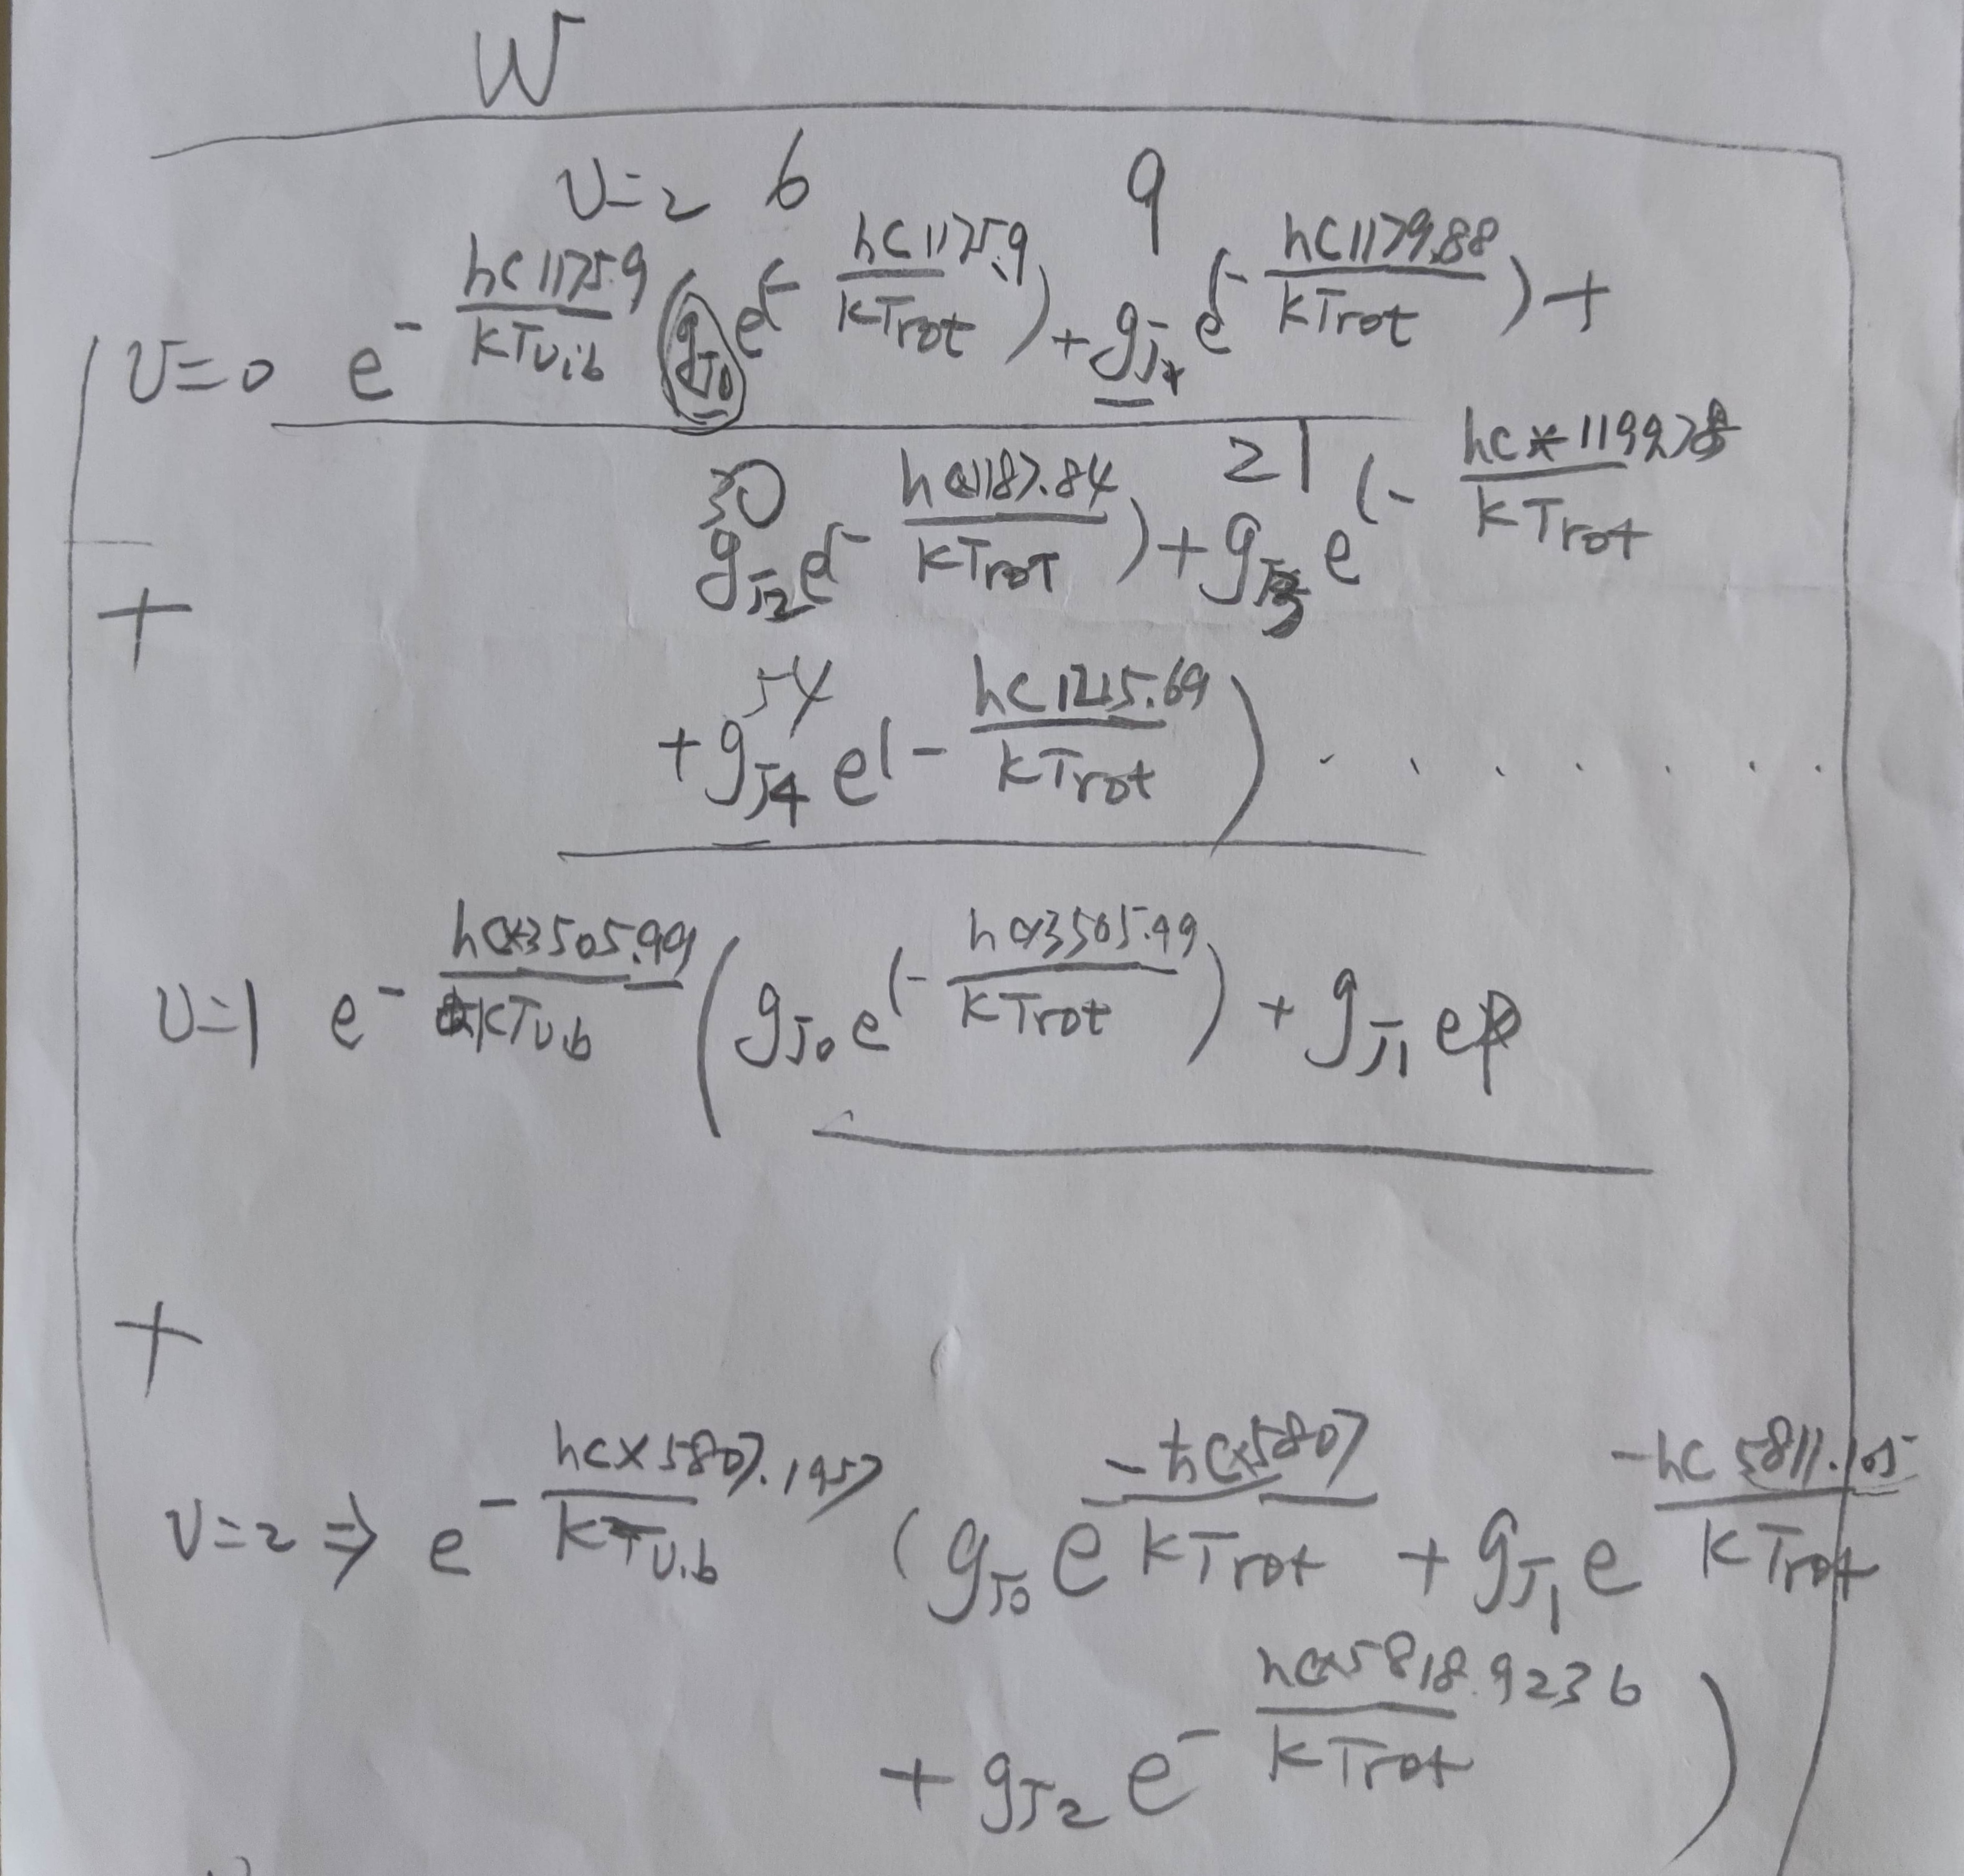 W
υ=2 6 9
υ=0 e^{-\frac{hc1175.9}{kT_{vib}}} (g_{J0} e^{(-\frac{hc1175.9}{kT_{rot}})} + g_{J1} e^{(-\frac{hc1179.88}{kT_{rot}})} +
30 21
g_{J2} e^{(-\frac{hc×1187.84}{kT_{rot}})} + g_{J3} e^{(-\frac{hc*1199.78}{kT_{rot}}}
+
54
+ g_{J4} e^{(-\frac{hc1215.69}{kT_{rot}})} . . . . . . .
υ=1 e^{-\frac{hc×3505.99}{kT_{vib}}} (g_{J0} e^{(-\frac{hc×3505.99}{kT_{rot}})} + g_{J1} e
+
υ=2 ⇒ e^{-\frac{hc×5807.1957}{kT_{vib}}} (g_{J0} e^{\frac{-hc×5807}{kT_{rot}}} + g_{J1} e^{\frac{-hc5811.105}{kT_{rot}}}
+ g_{J2} e^{-\frac{hc×5818.9236}{kT_{rot}}} )